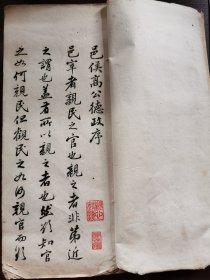 邑侯高公德政序
邑宰者親民之官也親之者非第近
之謂也蓋有所以親之者也然欲知官
之如何親民但觀民之如何親官而影